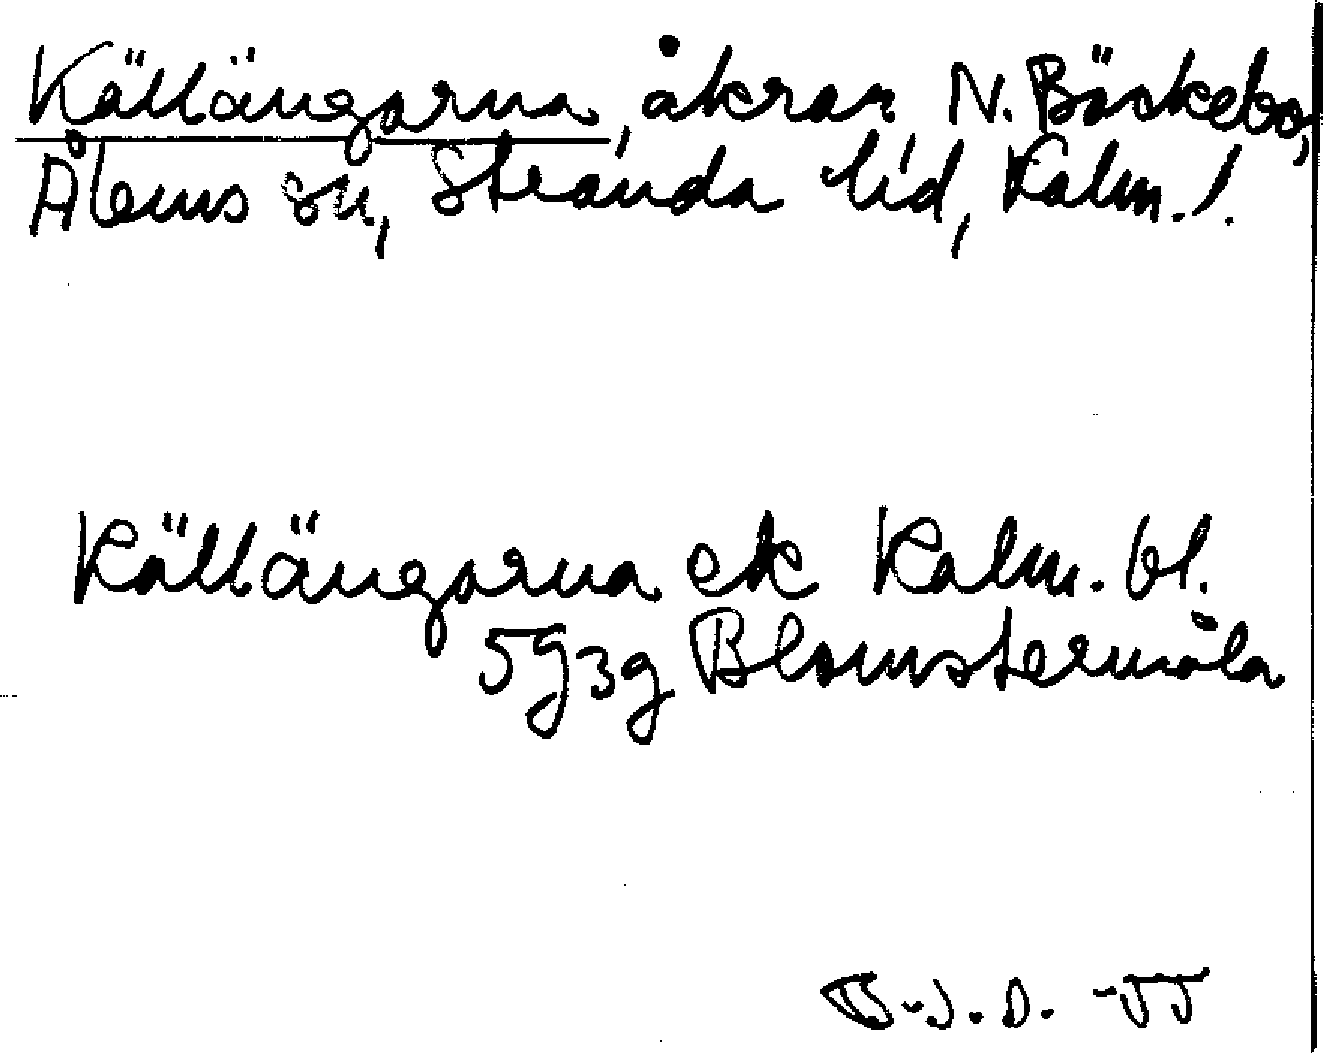 Källängarna, åkrar N. Bäckebo,
Ålems sn, Stranda hd, Kalm. l.
Källängarna ek Kalm. bl.
5g3g Blomstermåla
B-J.O. -55